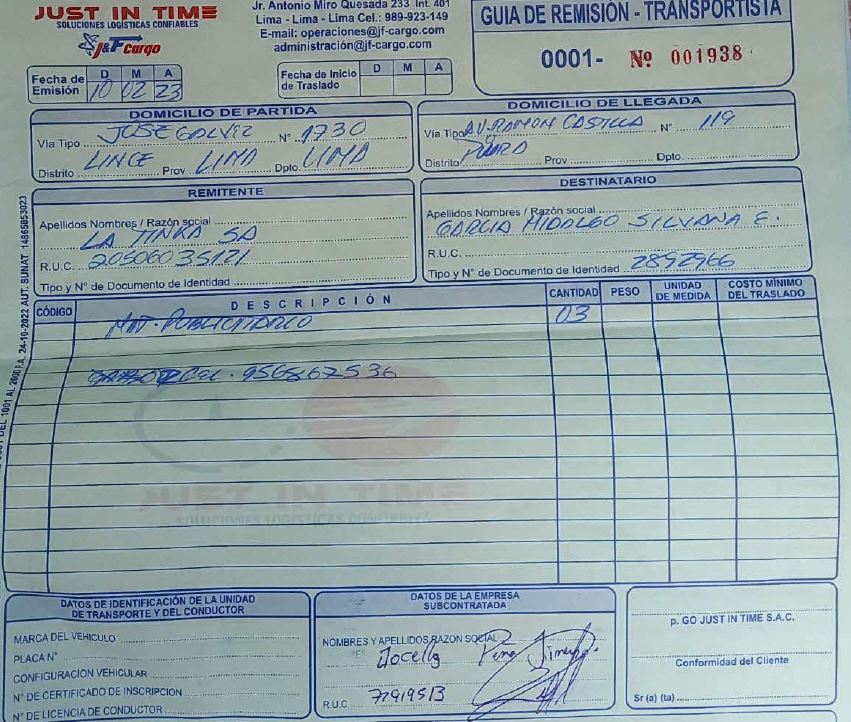 JUST IN TIME
SOLUCIONES LOGÍSTICAS CONFIABLES
J&F Cargo
Jr. Antonio Miro Quesada 233 Int. 401
Lima - Lima - Lima Cel.: 989-923-149
E-mail: operaciones@jf-cargo.com
administración@jf-cargo.com
GUIA DE REMISIÓN - TRANSPORTISTA
0001- Nº 001938
Fecha de Emisión D M A
10 02 23
Fecha de Inicio de Traslado D M A
DOMICILIO DE PARTIDA
Via Tipo JOSE GALVEZ N° 1730
Distrito LINCE Prov LIMA Dpto. LIMA
DOMICILIO DE LLEGADA
Via Tipo AV. RAMON CASTILLA N° 119
Distrito Prov Dpto.
REMITENTE
Apellidos Nombres / Razón social
LA TINKA SA
R.U.C. 20506035121
Tipo y N° de Documento de Identidad
DESTINATARIO
Apellidos Nombres / Razón social
GARCIA HIDALGO SILVANA E.
R.U.C.
Tipo y N° de Documento de Identidad 2892966
CÓDIGO DESCRIPCIÓN CANTIDAD PESO UNIDAD DE MEDIDA COSTO MÍNIMO DEL TRASLADO
MAT. PUBLICITARIO 03
CEL. 956867536
JUST IN TIME
SOLUCIONES LOGÍSTICAS CONFIABLES
DEL 1001 AL 2000 F.A. 24-10-2022 AUT. SUNAT 14865853023
DATOS DE IDENTIFICACIÓN DE LA UNIDAD
DE TRANSPORTE Y DEL CONDUCTOR
MARCA DEL VEHICULO
PLACA N°
CONFIGURACION VEHICULAR
N° DE CERTIFICADO DE INSCRIPCION
N° DE LICENCIA DE CONDUCTOR
DATOS DE LA EMPRESA
SUBCONTRATADA
NOMBRES Y APELLIDOS RAZON SOCIAL
Jocelly Pena Jimenez
R.U.C 77919513
p. GO JUST IN TIME S.A.C.
Conformidad del Cliente
Sr (a) (ta)